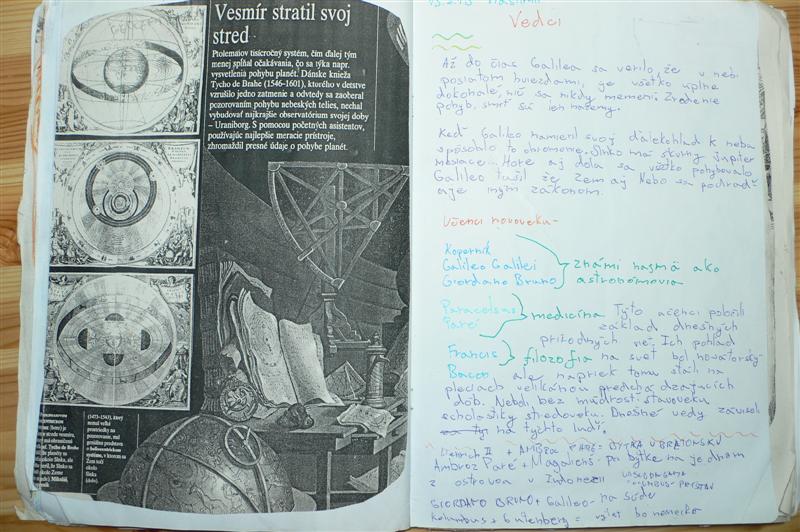 Vesmír stratil svoj
stred
Ptolemaiov tisícročný systém, čím ďalej tým
menej spĺňal očakávania, čo sa týka napr.
vysvetlenia pohybu planét. Dánske knieža
Tycho de Brahe (1546-1601), ktorého v detstve
vzrušilo jedno zatmenie a odvtedy sa zaoberal
pozorovaním pohybu nebeských telies, nechal
vybudovať najkrajšie observatórium svojej doby
- Uraniborg. S pomocou početných asistentov,
používajúc najlepšie meracie prístroje,
zhromaždil presné údaje o pohybe planét.
(1473-1543), ktorý
nemal veľké
prostriedky na
pozorovanie, mal
geniálnu predstavu
o heliocentrickom
systéme, v ktorom sa
Zem točí
okolo
Slnka
Vedci
Až do čias Galilea sa verilo, že v nebi
posiatom hviezdami, je všetko úplne
dokonalé, nič sa nikdy nemení. Zrodenie
pohyb, smrť sú len
Keď Galileo namieril svoj ďalekohľad k nebu
spôsobilo to ohromenie. Slnko má škvrny Jupiter
mesiace. Hore aj dola sa všetko pohybovalo
Galileo tušil že Zem aj Nebo sa podriaďuje
iným zákonom.
Učenci novoveku
Koperník
Galileo Galilei
Giordano Bruno
známi najmä ako
astronómovia
Paracelsus
Paré
medicína
Francis
Bacon
filozofia
Týto učenci položili
základ dnešných
prírodných vied. Ich pohľad
na svet bol novátorský
ale napriek tomu stáli na
pleciach velikánov predchádzajúcich
dôb. Neboli bez múdrosti staroveku
scholastiky stredoveku. Dnešné vedy záviseli
na týchto ľudí.
Ambroz Paré + Magalhães - po bytke na jednom
z ostrovov v Indonezii
GIORDANO BRUNO + Galileo - na súde
Kolumbus + Gutenberg =